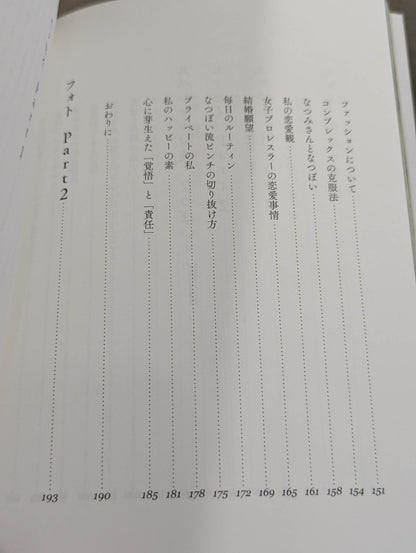 ファッションについて 151
コンプレックスの克服法 154
なつみさんとなつぽい 158
私の恋愛観 161
女子プロレスラーの恋愛事情 165
結婚願望 169
毎日のルーティン 172
なつぽい流ピンチの切り抜け方 175
プライベートの私 178
私のハッピーの素 181
心に芽生えた「覚悟」と「責任」 185
おわりに 190
フォト Part2 193